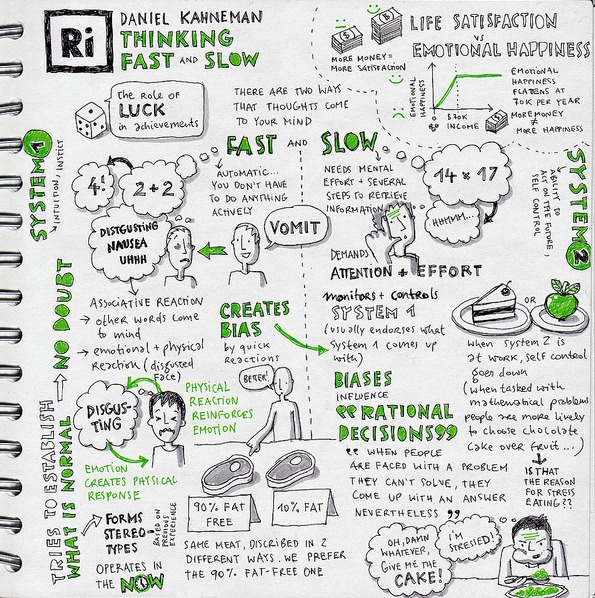 Ri
DANIEL KAHNEMAN
THINKING
FAST AND SLOW
The role of
LUCK
in achievements
THERE ARE TWO WAYS
THAT THOUGHTS COME
TO YOUR MIND
MORE MONEY =
MORE SATISFACTION
LIFE SATISFACTION
VS
EMOTIONAL HAPPINESS
EMOTIONAL
HAPPINESS
$70K
INCOME
EMOTIONAL
HAPPINESS
FLATENS AT
70K PER YEAR
MORE MONEY
≠
MORE HAPPINESS
FAST AND SLOW
SYSTEM 1
INTUITION / INSTICT
4!
2+2
AUTOMATIC...
YOU DON'T HAVE
TO DO ANYTHING
ACTIVELY
DISGUSTING
NAUSEA
UHHH
VOMIT
ASSOCIATIVE REACTION
→ other words come
to mind
→ emotional + physical
Reaction (disgusted
face)
CREATES
BIAS
by quick
reactions
NEEDS MENTAL
EFFORT + SEVERAL
STEPS TO RETRIEVE
INFORMATION
14 × 17
HHMM...
DEMANDS
ATTENTION + EFFORT
SYSTEM 2
ABILITY TO
ACT ON THE FUTURE,
SELF CONTROL
monitors + controls
SYSTEM 1
(usually endorses what
System 1 comes up
with)
BIASES
INFLUENCE
"RATIONAL
DECISIONS"
"WHEN PEOPLE
ARE FACED WITH A PROBLEM
THEY CAN'T SOLVE, THEY
COME UP WITH AN ANSWER
NEVERTHELESS"
OR
when system 2 is
at work, self control
goes down
(when tasked with
mathematical problems
people are more likely
to choose chocolate
cake over fruit...)
IS THAT
THE REASON
FOR STRESS
EATING??
OH, DAMN
WHATEVER,
GIVE ME THE
CAKE!
I'M
STRESSED!
TRIES TO ESTABLISH
WHAT IS NORMAL → NO DOUBT
DISGUS-
TING
PHYSICAL
REACTION
REINFORCES
EMOTION
EMOTION
CREATES PHYSICAL
RESPONSE
FORMS
STEREO
TYPES
BASED ON
PREVIOUS
EXPERIENCE
OPERATES IN
THE NOW
BETTER!
90% FAT
FREE
10% FAT
SAME MEAT, DISCRIBED IN 2
DIFFERENT WAYS. WE PREFER
THE 90% FAT-FREE ONE